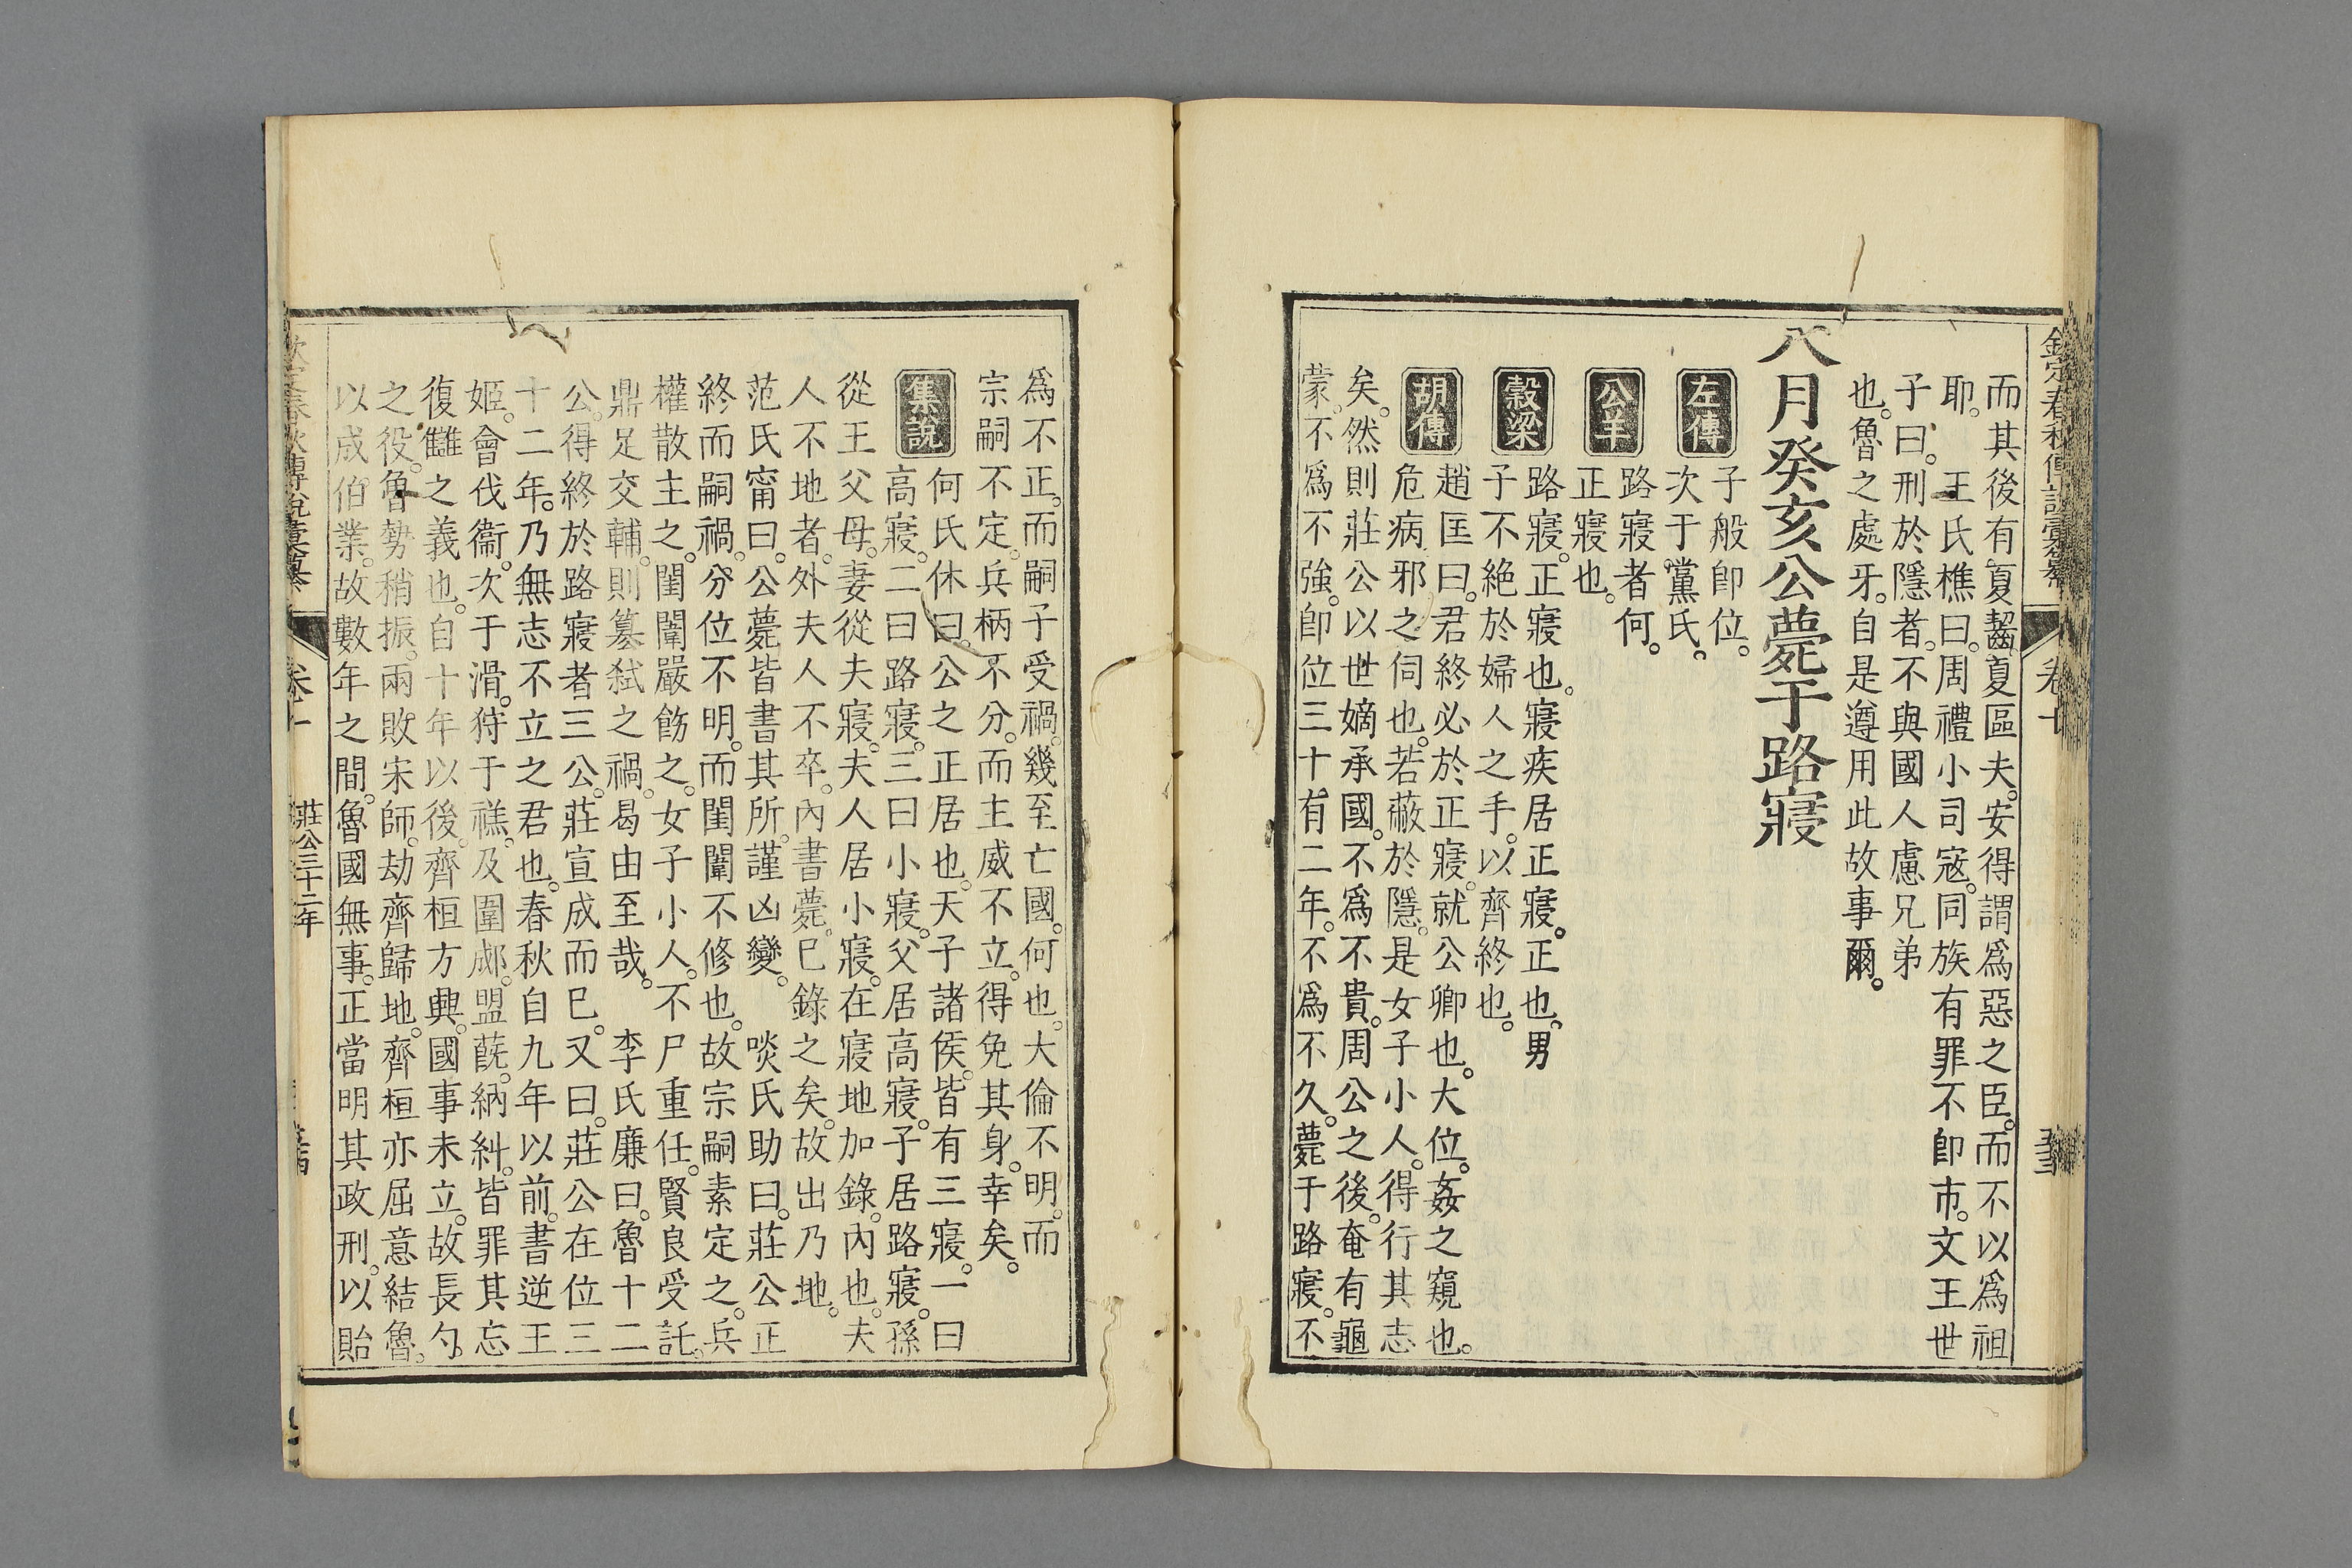 欽定春秋傳說彙纂
卷十
而其後有夏齧夏區夫。安得謂爲惡之臣。而不以爲祖
耶。　王氏樵曰。周禮小司寇。同族有罪不卽市。文王世
子曰。刑於隱者。不與國人慮兄弟
也。魯之處牙。自是遵用此故事爾。
八月癸亥公薨于路寢
左傳
子般卽位。
次于黨氏。
公羊
路寢者何。
正寢也。
穀梁
路寢。正寢也。寢疾居正寢。正也。男
子不絶於婦人之手。以齊終也。
胡傳
趙匡曰。君終必於正寢。就公卿也。大位。姦之窺也。
危病邪之伺也。若蔽於隱。是女子小人。得行其志
矣。然則莊公以世嫡承國。不爲不貴。周公之後。奄有龜
蒙。不爲不強。卽位三十有二年。不爲不久。薨于路寢。不
爲不正。而嗣子受禍。幾至亡國。何也。大倫不明。而
宗嗣不定。兵柄不分。而主威不立。得免其身。幸矣。
集說
何氏休曰。公之正居也。天子諸侯。皆有三寢。一曰
高寢。二曰路寢。三曰小寢。父居高寢。子居路寢。孫
從王父母。妻從夫寢。夫人居小寢。在寢地加錄。內也。夫
人不地者。外夫人不卒。內書薨。巳錄之矣。故出乃地。
范氏甯曰。公薨皆書其所。謹凶變。　啖氏助曰。莊公正
終而嗣禍。分位不明。而閨闈不修也。故宗嗣素定之。兵
權散主之。閨闈嚴飭之。女子小人。不尸重任。賢良受託。
鼎足交輔。則簒弑之禍。曷由至哉。　李氏廉曰。魯十二
公。得終於路寢者三公。莊宣成而巳。又曰。莊公在位三
十二年。乃無志不立之君也。春秋自九年以前。書逆王
姬。會伐衞。次于滑。狩于禚。及圍郕。盟蔇。納糾。皆罪其忘
復讎之義也。自十年以後。齊桓方興。國事未立。故長勺。
之役。魯勢稍振。兩敗宋師。劫齊歸地。齊桓亦屈意結魯。
以成伯業。故數年之間。魯國無事。正當明其政刑。以貽
欽定春秋傳說彙纂
卷十
莊公三十二年